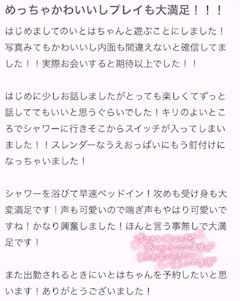 めっちゃかわいいしプレイも大満足！！！
はじめましてのいとはちゃんと遊ぶことにしました！
写真みてもかわいいし内面も間違えないと確信してま
した！！実際お会いすると期待以上でした！！
はじめに少しお話しましたがとっても楽しくてずっと
話しててもいいと思うぐらいでした！キリのよいとこ
ろでシャワーに行きそこからスイッチが入ってしまい
ました！！スレンダーなうえおっぱいにもう釘付けに
なっちゃいました！
シャワーを浴びて早速ベッドイン！攻めも受け身も大
変満足です！声も可愛いので喘ぎ声もやはり可愛いで
すね！かなり興奮しました！ほんと言う事無しで大満
足です！
また出勤されるときにいとはちゃんを予約したいと思
います！ありがとうございました！